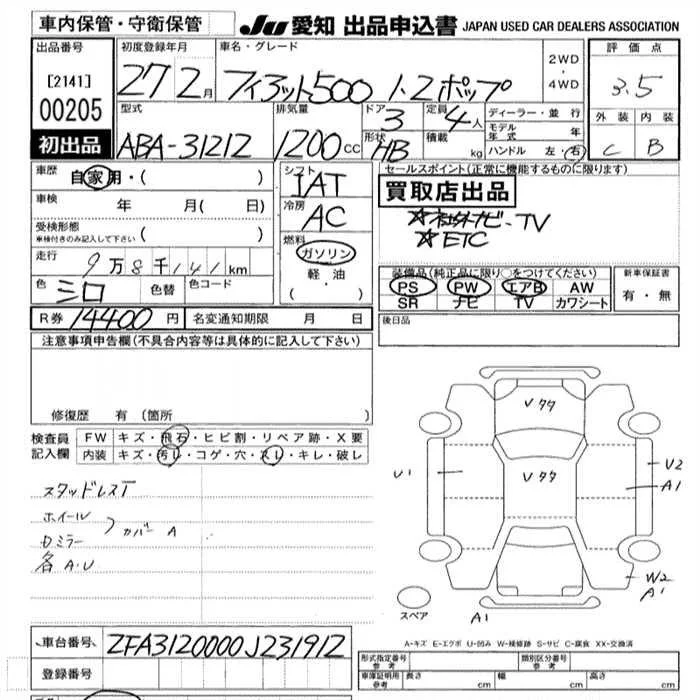 車内保管・守衛保管
JU 愛知 出品申込書 JAPAN USED CAR DEALERS ASSOCIATION
出品番号
[2141]
00205
初出品
初度登録年月
27 2月
車名・グレード
フィアット500 1.2ポップ
2WD
・
4WD
評価点
3.5
外装 内装
C B
型式
ABA-31212
排気量
1200cc
ドア
3
形状
HB
定員
4人
積載
kg
ディーラー・並行
モデル年式 年
ハンドル 左・右
車歴
自家用・( )
車検
年 月( 日)
受検形態
車検付きのみ記入して下さい ( )
走行
9万8千141km
色 ミロ 色替 色コード
R券 14400円 名変通知期限 月 日
シフト
IAT
冷房
AC
燃料
ガソリン
軽・油
( ・ )
セールスポイント(正常に機能するものに限ります)
買取店出品
☆社外ナビ・TV
☆ETC
装備品(純正品に限り○をつけてください)
PS PW エアB AW
SR ナビ TV カワシート
新車保証書
有・無
後日品
注意事項申告欄(不具合内容等は具体的に記入して下さい)
修復歴 有(箇所
検査員記入欄
FW キズ・飛石・ヒビ割・リペア跡・X要
内装 キズ・汚レ・コゲ・穴・スレ・キレ・破レ
スタッドレスT
ホイール
カバー A
ミラー
各A・U
U1
U2
A1
W2
A1
A1
スペア
A-キズ E-エクボ U-凹み W-補修跡 S-サビ C-腐食 XX-交換済
車台番号 ZFA3120000J231912
登録番号
形式指定番号 参考
類別区分番号 参考
車庫証明用 参考
長さ cm 幅 cm 高さ cm